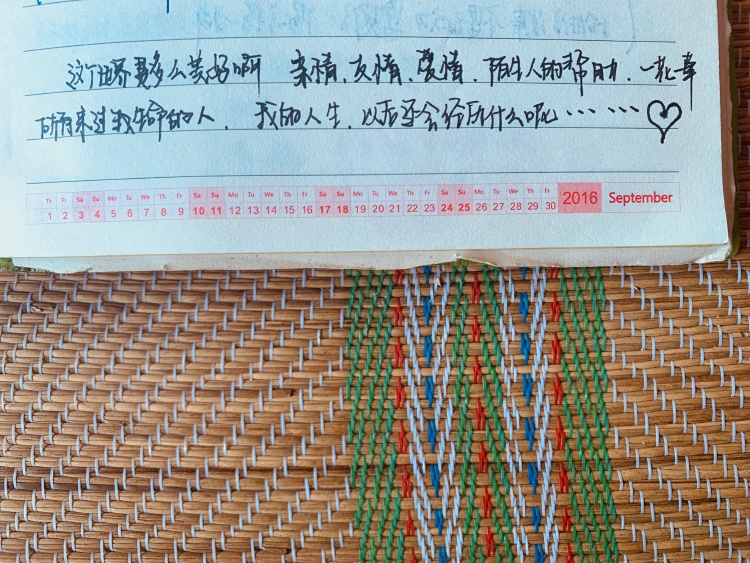 这个世界是多么美好啊 亲情、友情、爱情、陌生人的帮助、一花一草
所有来过我生命的人、我的人生、以后还会经历什么呢……
Th Fr Sa Su Mo Tu We Th Fr Sa Su Mo Tu We Th Fr Sa Su Mo Tu We Th Fr Sa Su Mo Tu We Th Fr 2016 September
1 2 3 4 5 6 7 8 9 10 11 12 13 14 15 16 17 18 19 20 21 22 23 24 25 26 27 28 29 30